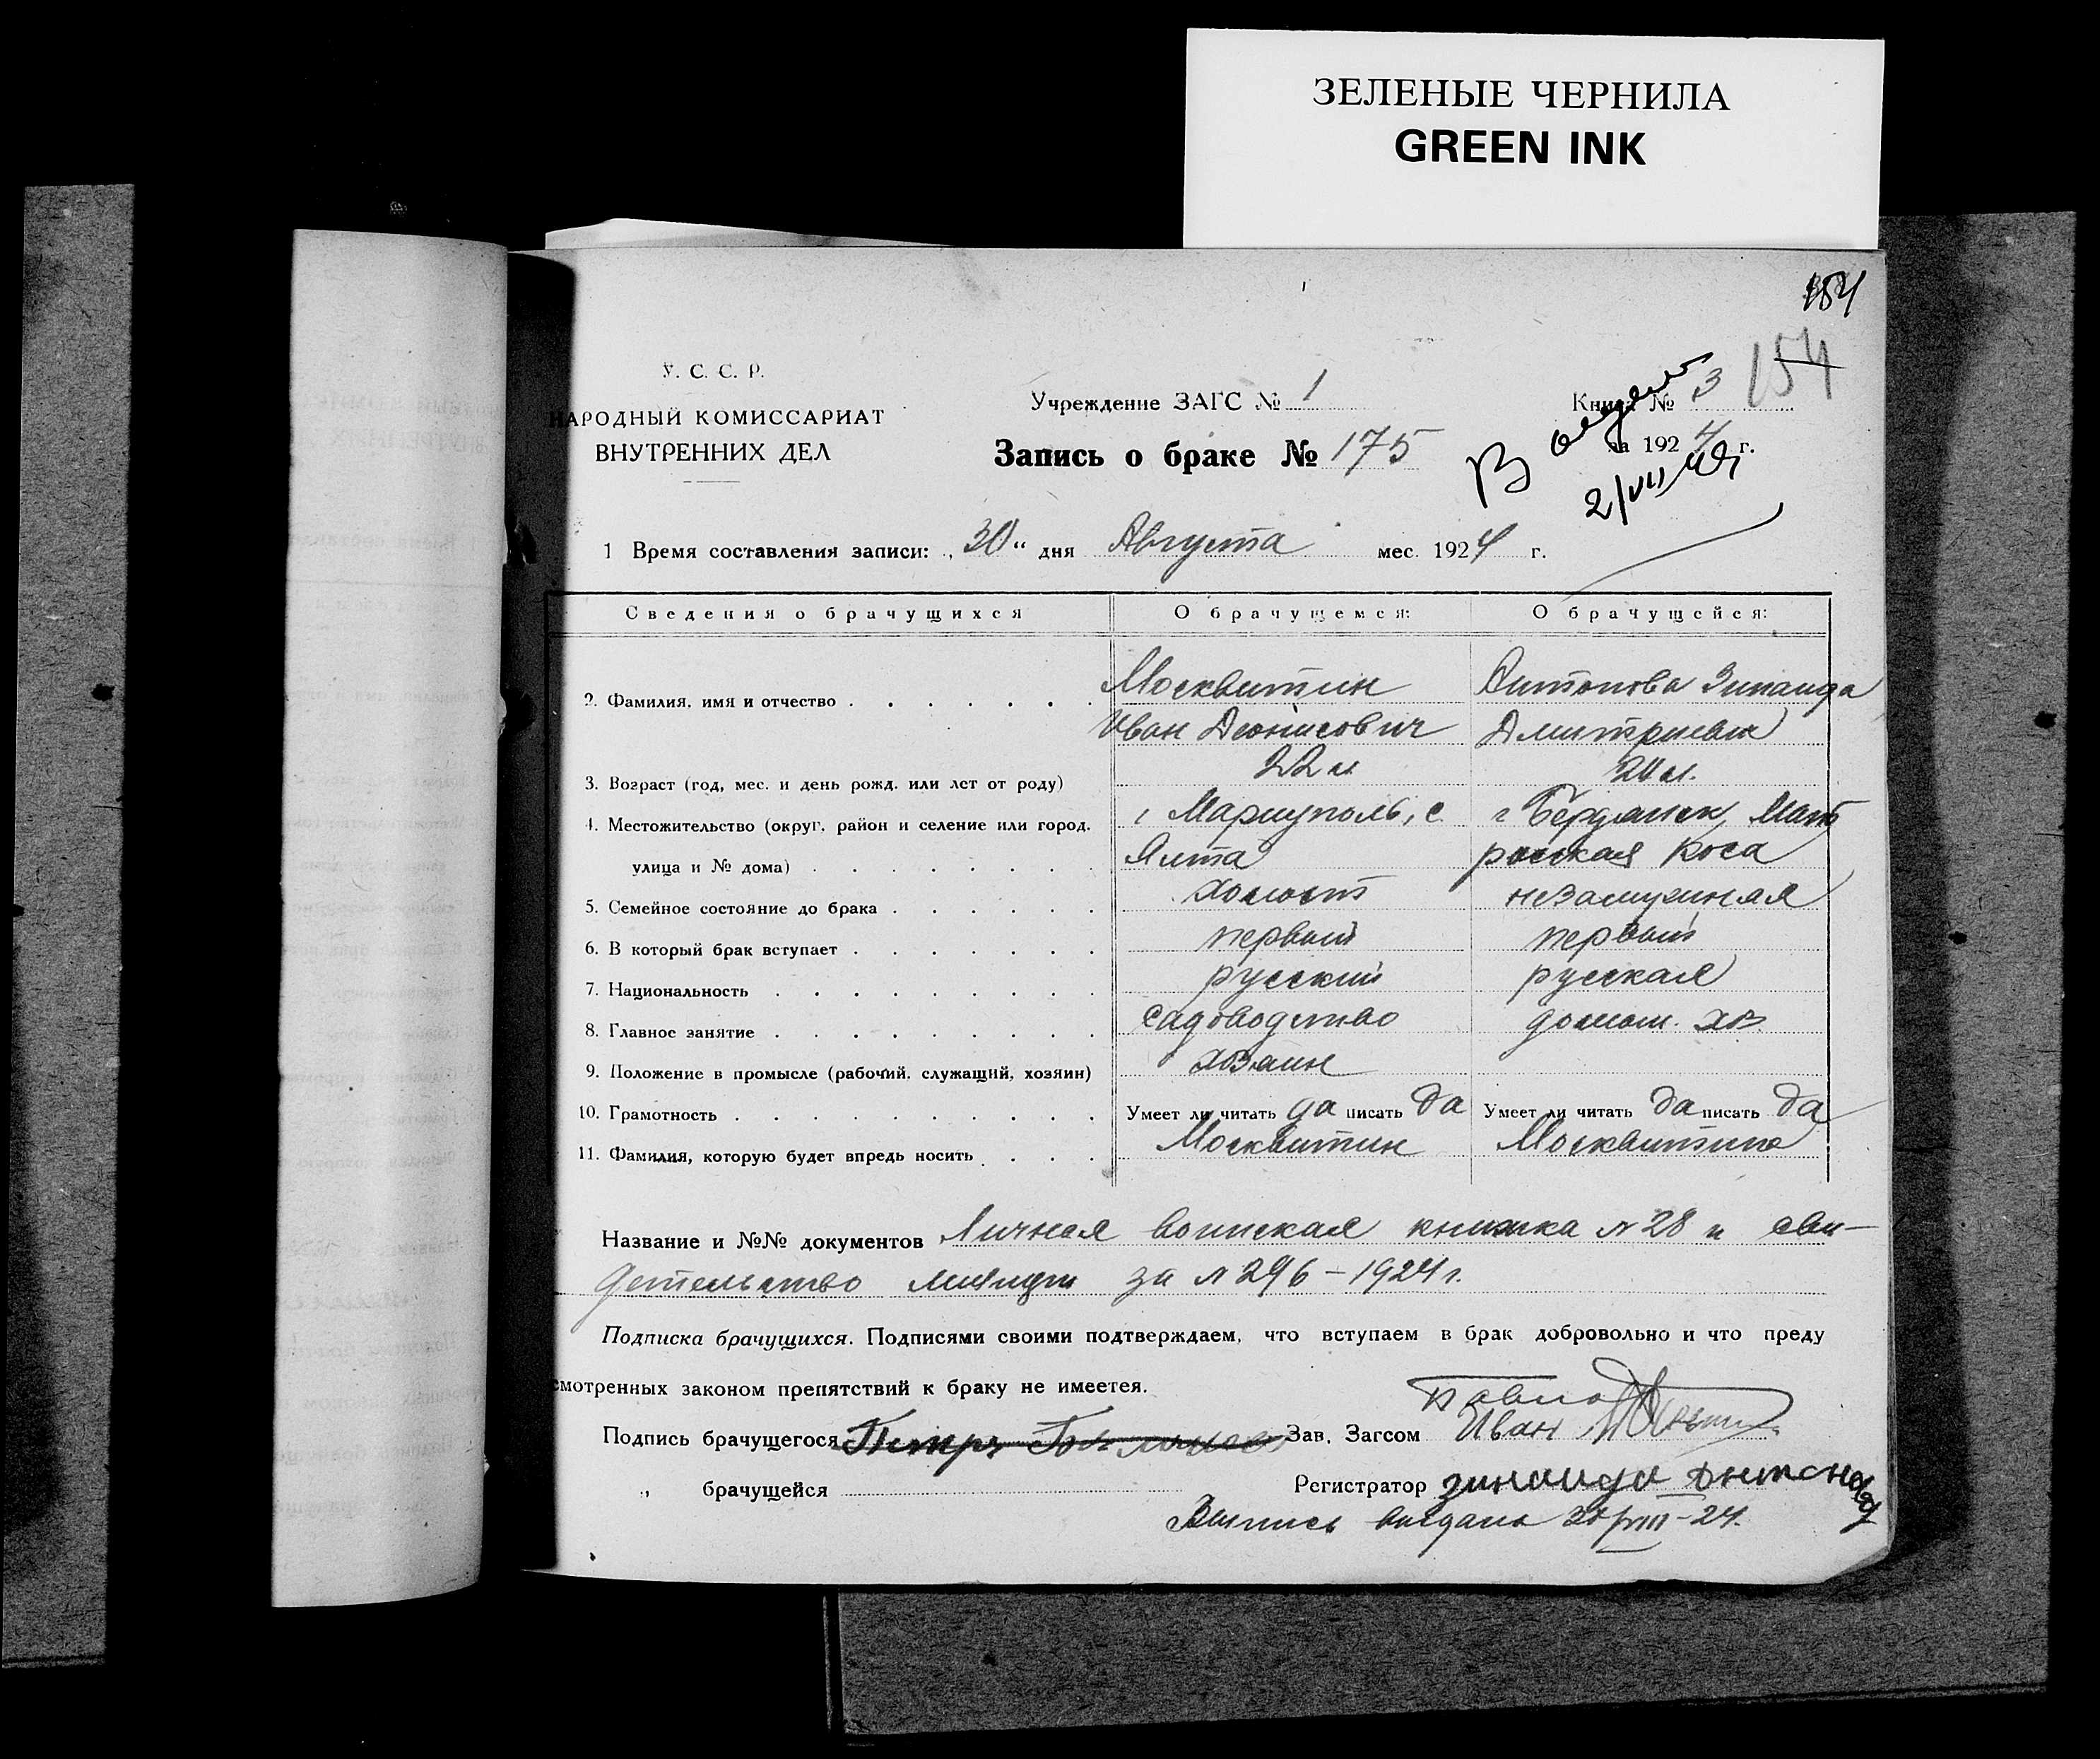 ЗЕЛЕНЫЕ ЧЕРНИЛА
GREEN INK
154
154
У. С. С. Р.
НАРОДНЫЙ КОМИССАРИАТ
ВНУТРЕННИХ ДЕЛ
Учреждение ЗАГС № 1
Книга № 3
Запись о браке № 175
за 1924 г.
В
2/VII
1 Время составления записи: „30“ дня Августа мес. 1924 г.
Сведения о брачущихся О брачущемся: О брачущейся:
2. Фамилия, имя и отчество Москвитин Антонова Зинаида
Иван Деонисович Дмитриевна
3. Возраст (год, мес. и день рожд. или лет от роду) 22 л. 20 л.
4. Местожительство (округ, район и селение или город, г Мариуполь, с. г Бердянск, Мат
улица и № дома) Ялта росская Коса
5. Семейное состояние до брака холост незамужняя
6. В который брак вступает первый первый
7. Национальность русский русская
8. Главное занятие садоводство домаш. хоз.
9. Положение в промысле (рабочий, служащий, хозяин) хозяин
10. Грамотность Умеет ли читать да писать да Умеет ли читать да писать да
11. Фамилия, которую будет впредь носить Москвитин Москвитина
Название и №№ документов Личная воинская книжка № 28 и сви-
детельство за № 296 – 1924 г.
Подписка брачущихся. Подписями своими подтверждаем, что вступаем в брак добровольно и что преду
смотренных законом препятствий к браку не имеется.
Подпись брачущегося Петр Зав. Загсом Иван
„ брачущейся Регистратор зинаида Антонова
Выпись выдана VIII–24.